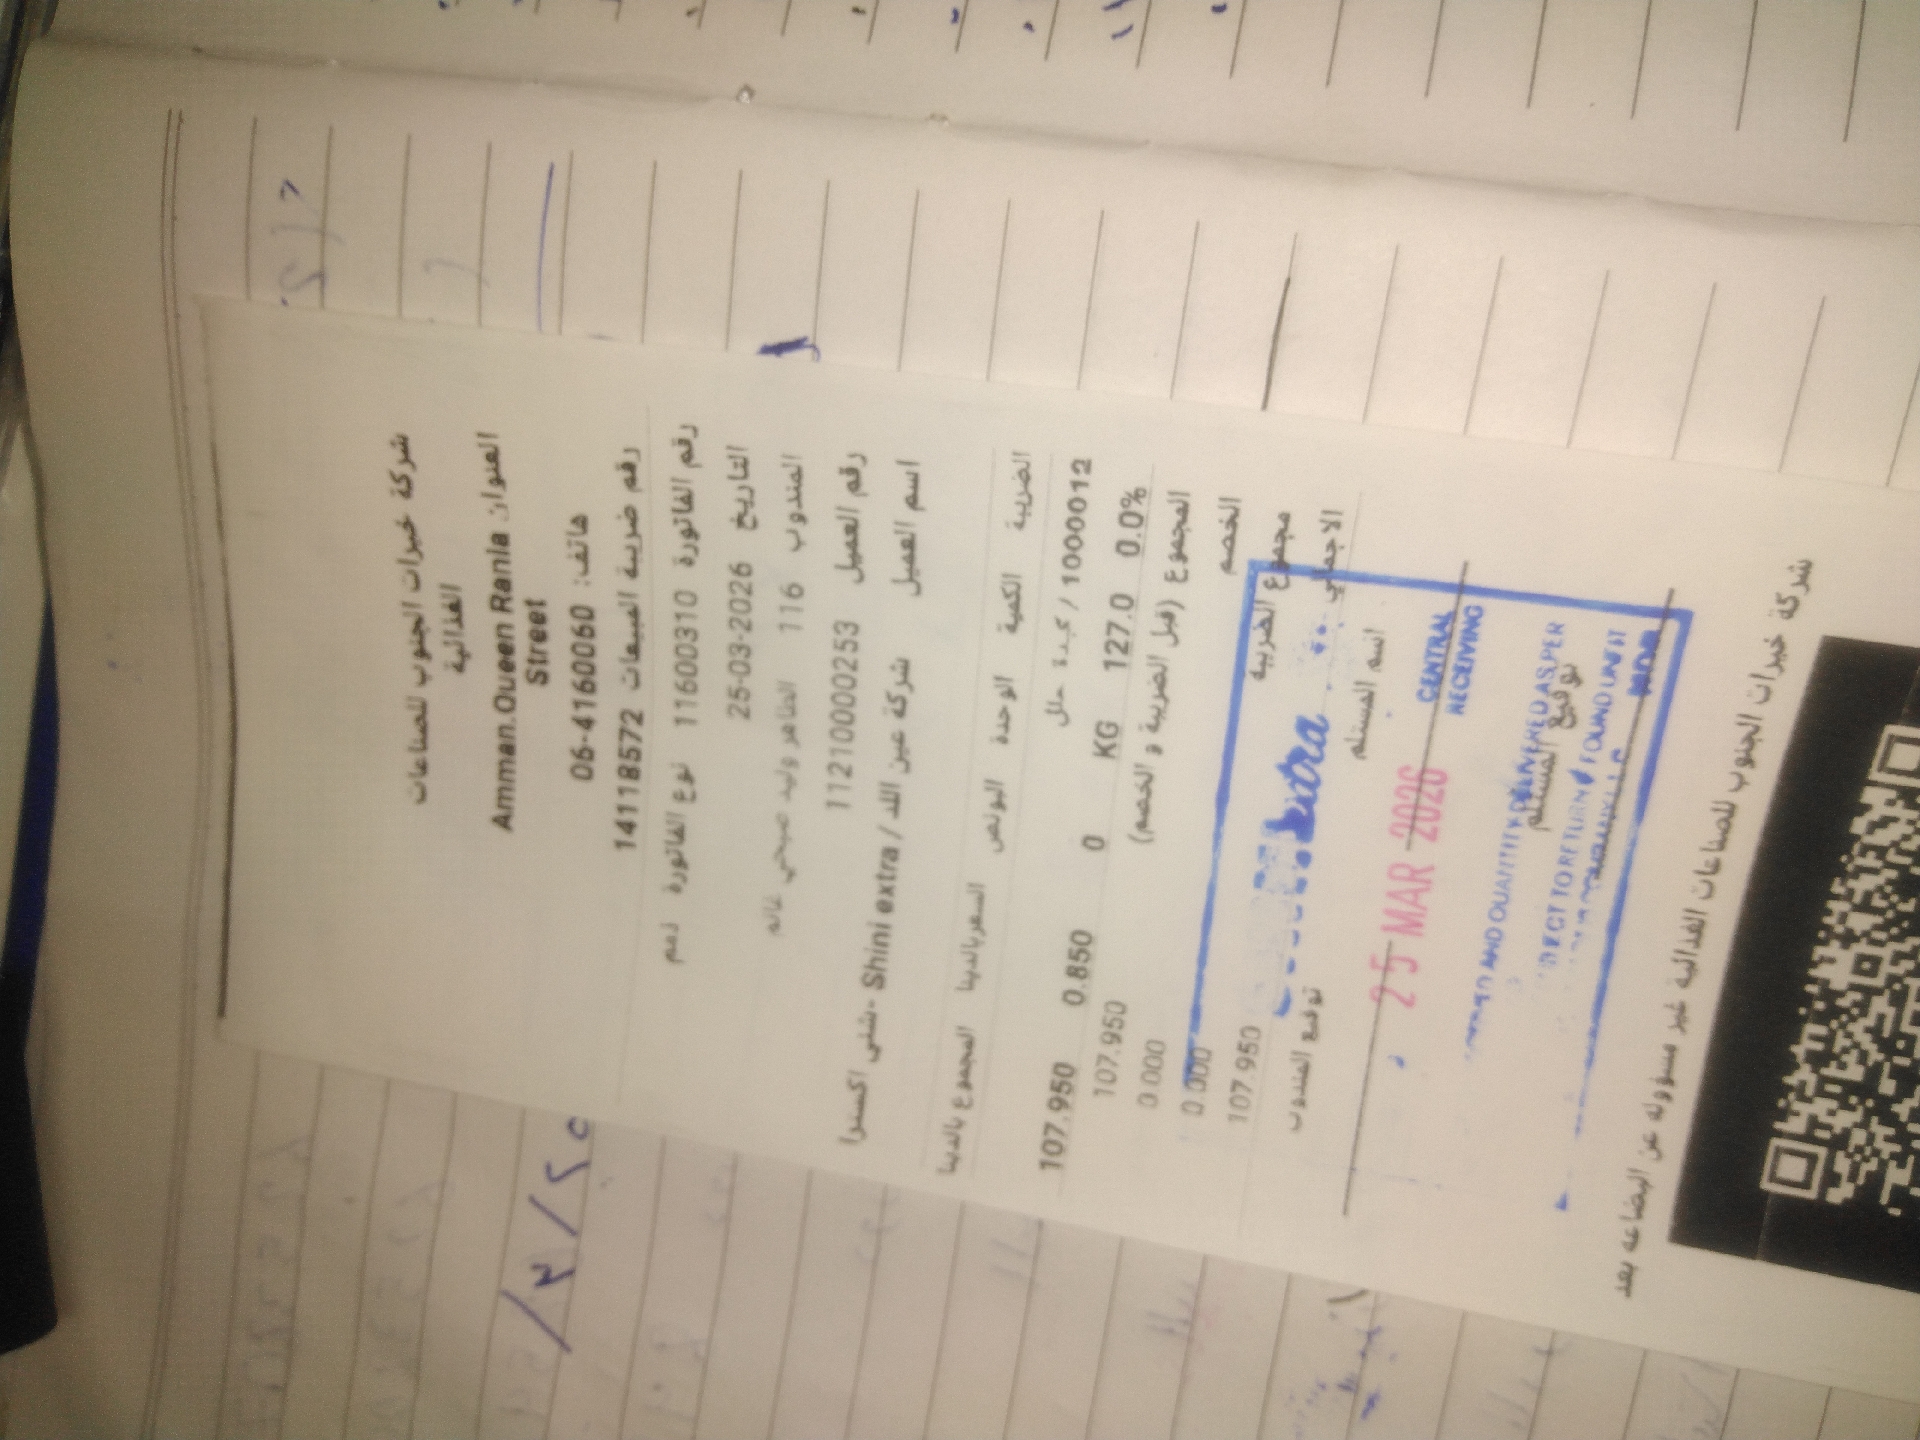 شركة خيرات الجنوب للصناعات
الغذائية
العنوان Amman.Queen Rania
Street
هاتف: 06-4160060
رقم ضريبة المبيعات 14118572
رقم الفاتورة 116000310 نوع الفاتورة ذمم
التاريخ 25-03-2026
المندوب 116 الطاهر وليد صبحي
رقم العميل 11210000253
اسم العميل شركة عين الله / Shini extra - شني اكسترا
الضريبة الكمية الوحدة البونص السعر بالدينا المجموع بالدينا
10000012 / كبدة / حلل
0.0% 127.0 KG 0 0.850 107.950
المجموع (قبل الضريبة و الخصم) 107.950
الخصم 0.000
مجموع الضريبة 0.000
الاجمالي 107.950
اسم المستلم توقيع المندوب
extra
CENTRAL
RECEIVING
25 MAR 2026
توقيع المستلم
AND QUANTITY DELIVERED AS PER
TO RETURN FOUND UNFIT
شركة خيرات الجنوب للصناعات الغذائية غير مسؤوله عن البضاعه بعد
/٣/٢٥